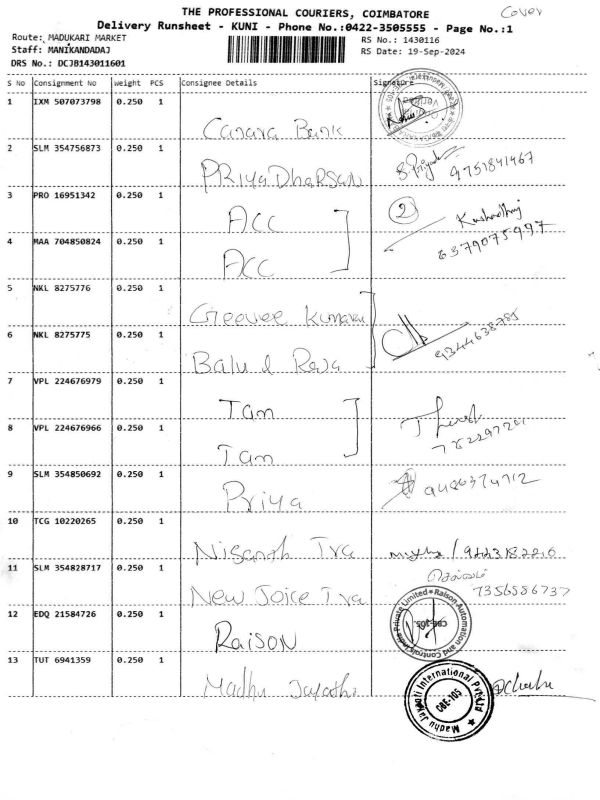 THE PROFESSIONAL COURIERS, COIMBATORE
Cover
Delivery Runsheet - KUNI - Phone No.:0422-3505555 - Page No.:1
Route: MADUKARI MARKET
RS No.: 1430116
Staff: MANIKANDADAJ
RS Date: 19-Sep-2024
DRS No.: DCJB143011601
S No Consignment No weight PCS Consignee Details Signature
1 IXM 507073798 0.250 1
Canara Bank
2 SLM 354756873 0.250 1
PRiya Dharsan 9751841467
3 PRO 16951342 0.250 1
Acc 2
4 MAA 704850824 0.250 1
Acc 6379075997
5 NKL 8275776 0.250 1
Geevee Kumaran
6 NKL 8275775 0.250 1
Balu & Raja 9344638785
7 VPL 224676979 0.250 1
Tan
8 VPL 224676966 0.250 1
Tan
9 SLM 354850692 0.250 1
Priya 9486374712
10 TCG 10220265 0.250 1
Nisanth Tra
11 SLM 354828717 0.250 1
செல்வம்
New Joice Tra 7356586737
12 EDQ 21584726 0.250 1
Raison
Raison Automation and Controls India Private Limited
CBE-105
13 TUT 6941359 0.250 1
Madhu Jayanthi
Madhu Jayanti International Pvt Ltd
CBE-105